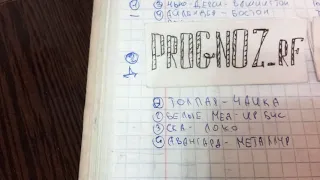 ③ НЬЮ-ДЖЕРСИ - ВАШИНГТОН
④ АЙЛЕНДЕРС - БОСТОН
PROGNOZ_RF
① ТОЛПАР - ЧАЙКА
② БЕЛЫЕ МЕД - ИРБИС
③ СКА - ЛОКО
④ АВАНГАРД - МЕТАЛЛУРГ